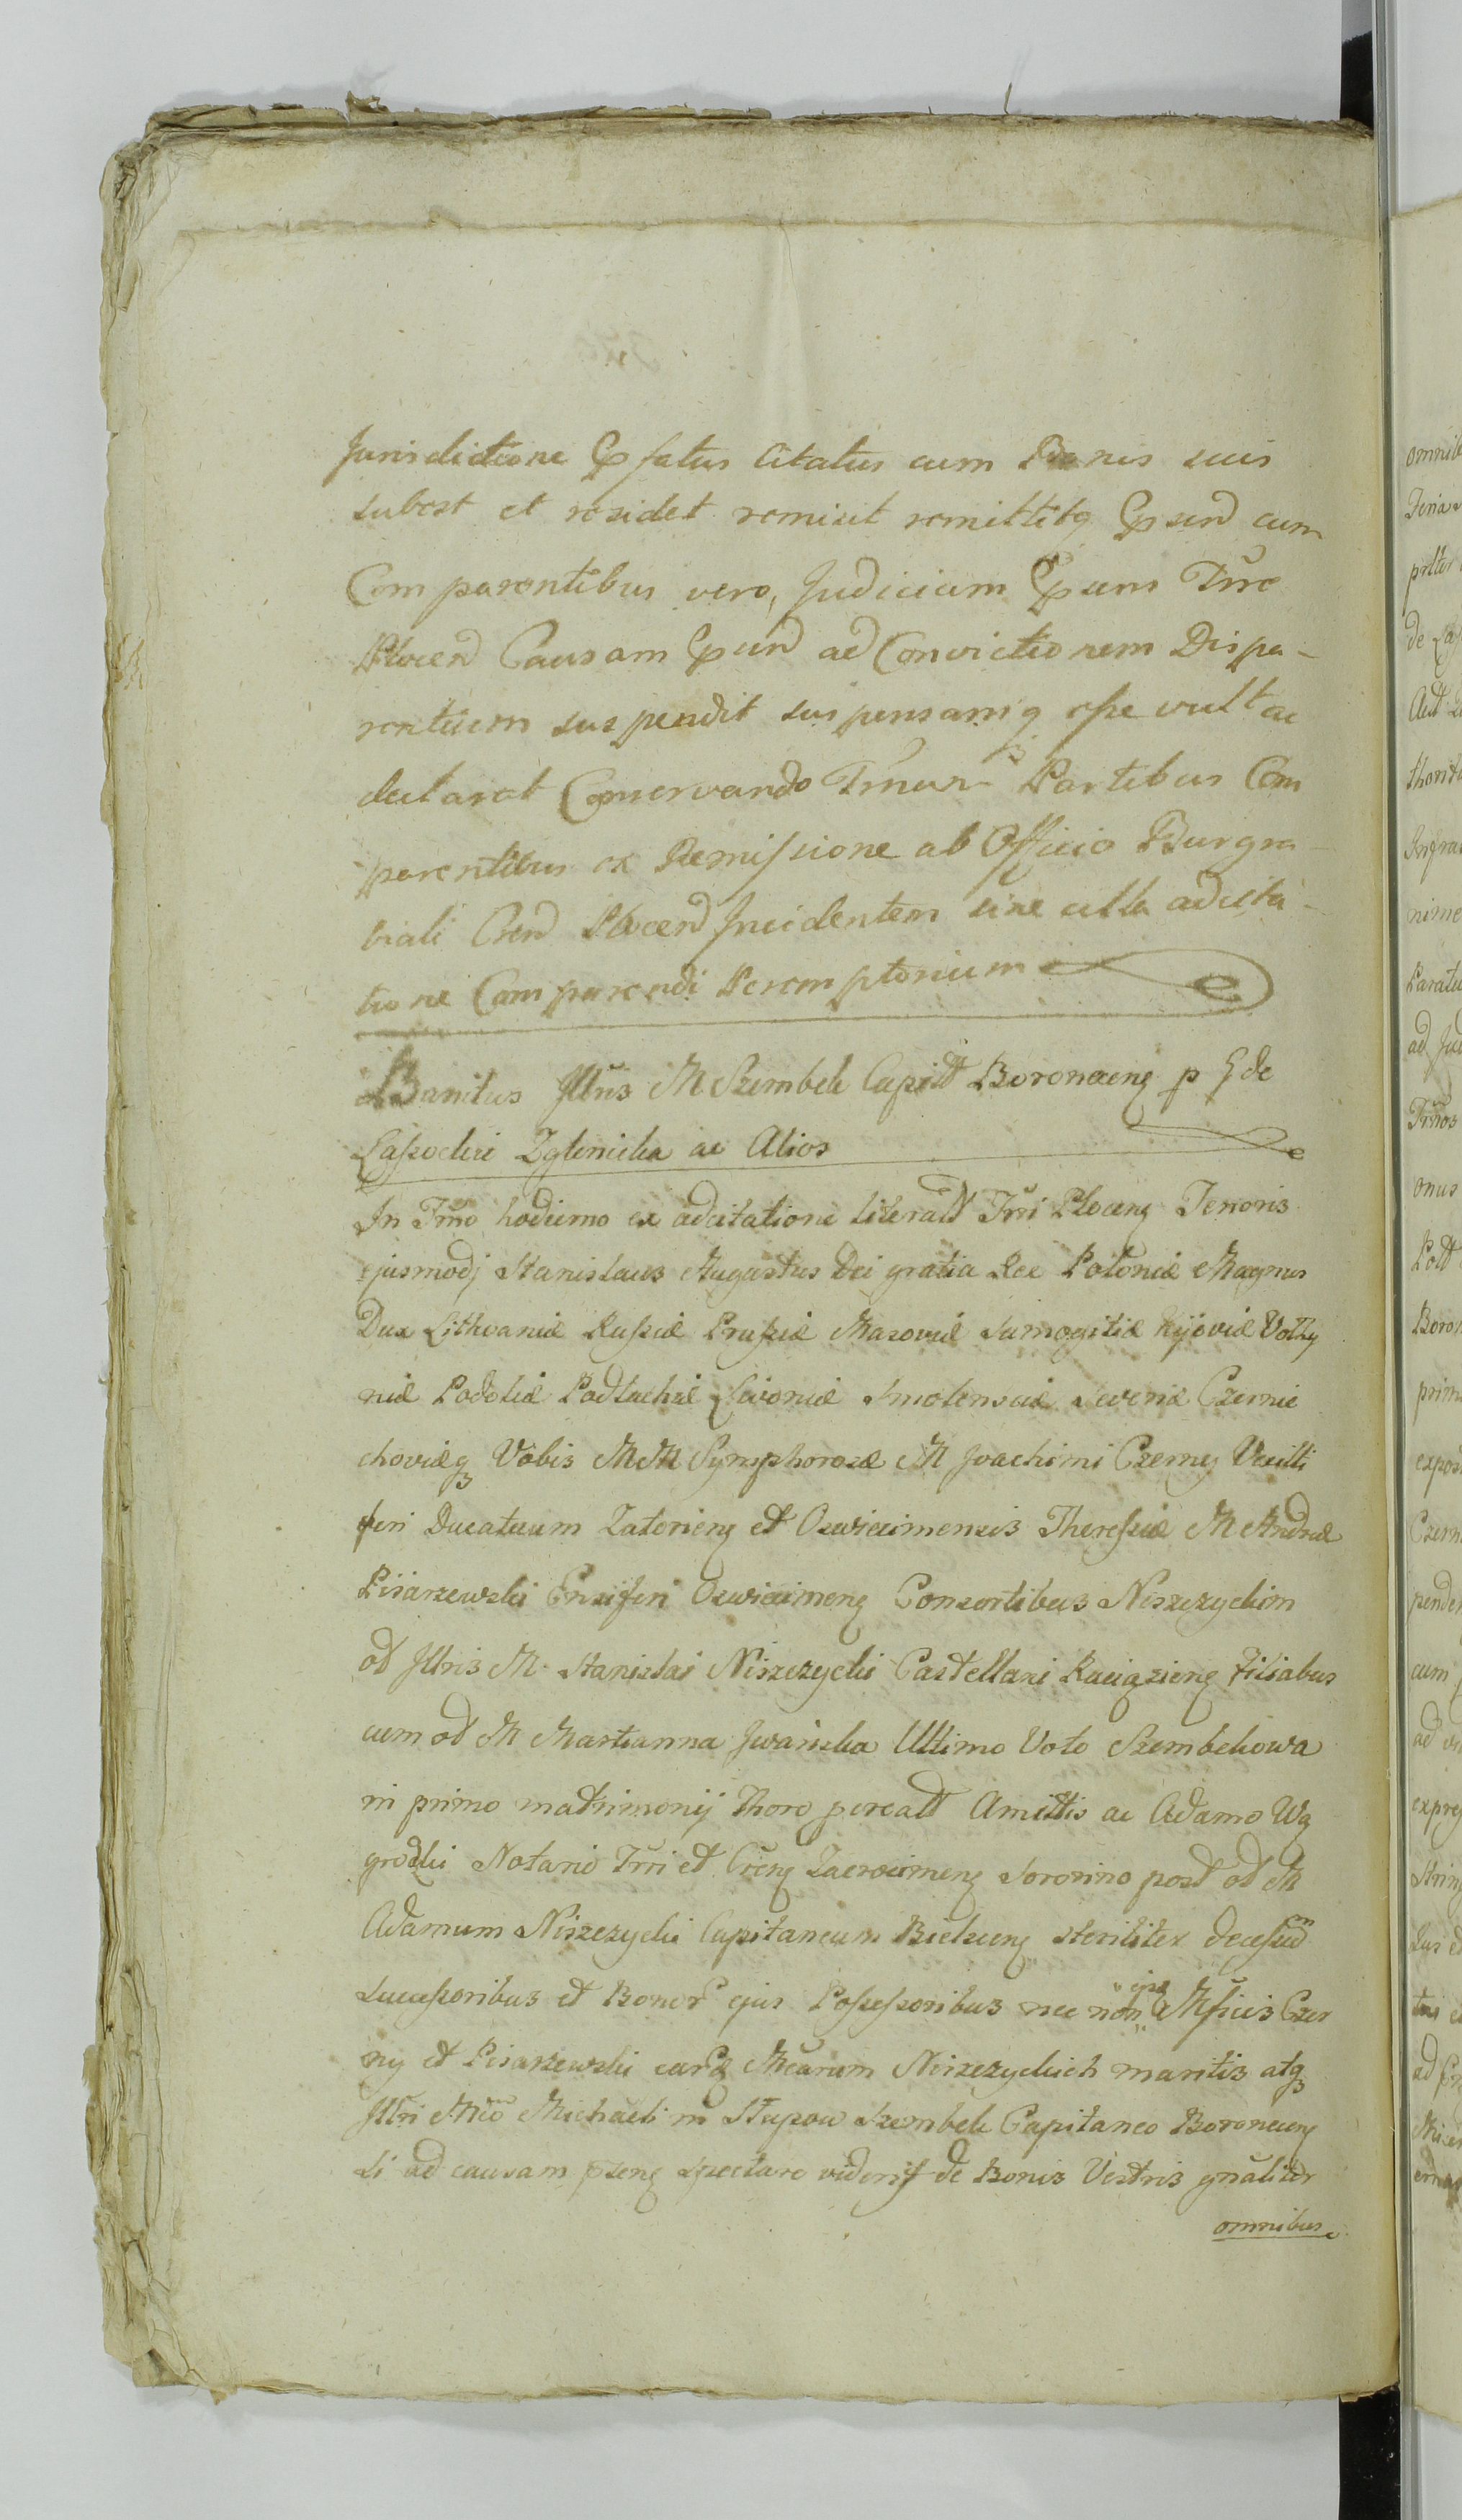 Jurisdictione Pfatus Citatus cum Bonis suis
subest et residet remisit remittitq Psend cum
Comparentibus vero, Judicium Psens Trre
Plocen Causam Psend ad Convictionem Dispa-
rentium suspendit suspensamq esse vult ac
declarat Conservando Trnum Partibus Com
parentibus ex Remissione ab Officio Burgra-
biali Cren Plocen Incidentem sine ulla adcita-
tione Comparendi Peremptorium
Banitus Illris M Szembek Capitt Boronecens p G de
Lasockie Zglenicka ac Alios
In Trno hodierno ex adcitatione literali Trri Plocens Tenoris
ejusmodj Stanislaus Augustus Dei gratia Rex Poloniæ Magnus
Dux Lithvaniæ Russiæ Prussiæ Masoviæ Samogitiæ Kijoviæ Volhy
niæ Podoliæ Podlachiæ Livoniæ Smolensciæ Severiæ Czernie
choviæq Vobis MM Symphorosæ M Joachimi Czerny Vexilli
feri Ducatuum Zatoriens et Oswiecimensis Theressiæ M Andreæ
Pisarzewski Ensiferi Oswiecimens Consortibus Niszczyckim
od Illris M. Stanislai Niszczycki Castellani Raciąziens Filiabus
cum od M Marianna Jwańska Ultimo Voto Szembekowa
in primo matrimonij Thoro procatt Amittis ac Adamo Wą
grodzki Notario Trri et Crens Zacrocimens Sororino post od M
Adamum Niszczycki Capitaneum Bielscens steriliter decessum
Successoribus et Bonor ejus Possessoribus nec non ipsis Mficis Czer
ny et Pisarzewski earq Mcarum Niszczyckich maritis atq
Illri Mco Michaeli in Słupow Szembek Capitaneo Boronecens
Si ad causam psens spectare videris de Bonis Vestris gnaliter
omnibus